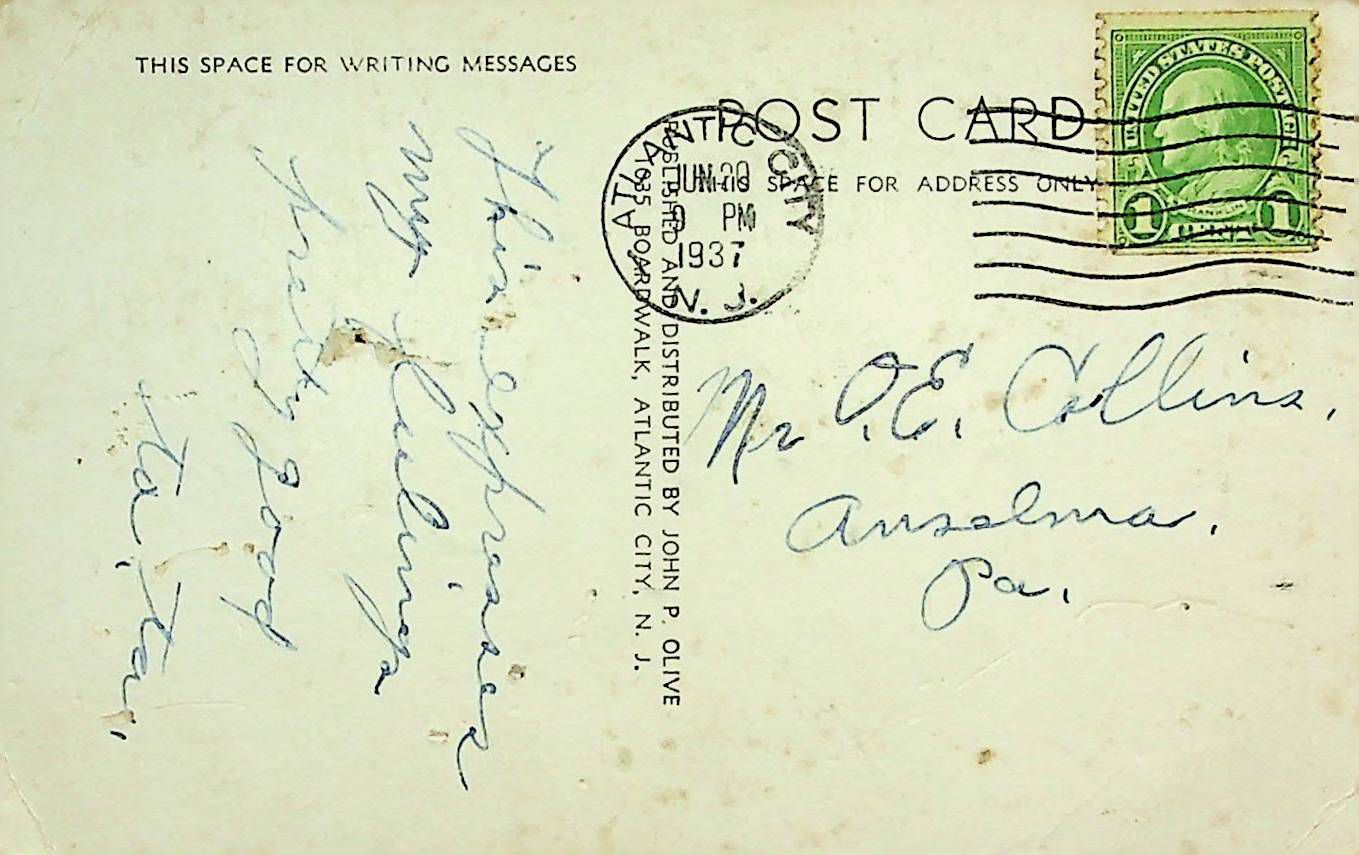 THIS SPACE FOR WRITING MESSAGES
This expresses
my feelings
pretty good
ta, ta,
PUBLISHED AND DISTRIBUTED BY JOHN P. OLIVE
1035 BOARDWALK, ATLANTIC CITY, N. J.
POST CARD
THIS SPACE FOR ADDRESS ONLY
ATLANTIC CITY
N. J.
JUN
PM
1937
UNITED STATES POSTAGE
FRANKLIN
1 CENT 1
Mr O.E. Collins,
Anselma,
Pa,